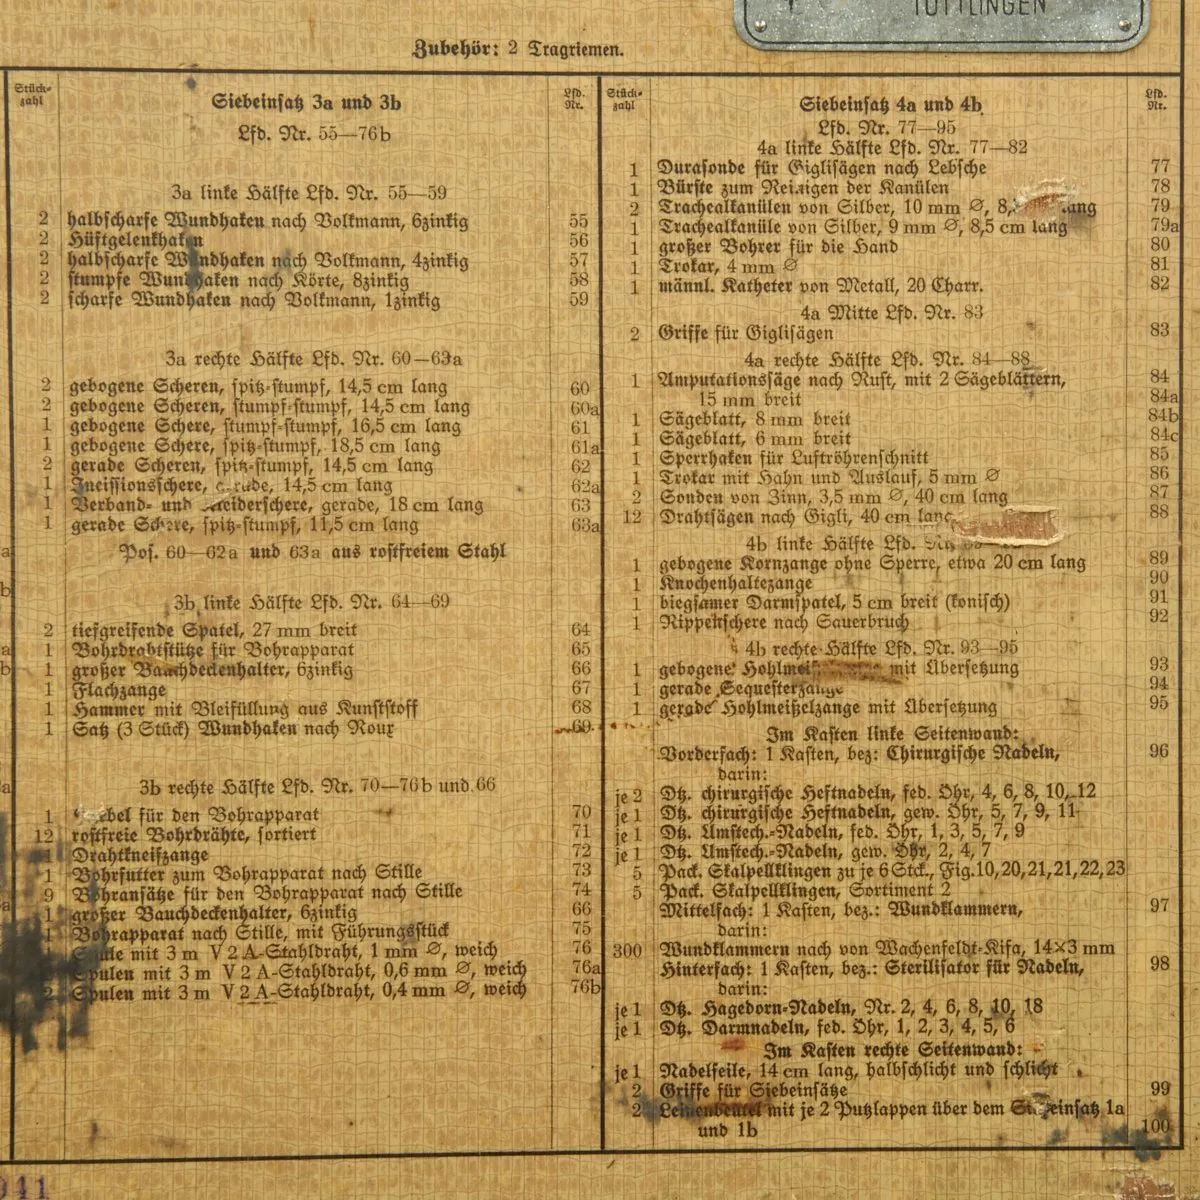 TUTTLINGEN
Zubehör: 2 Tragriemen.
Stück-
zahl
Siebeinsatz 3a und 3b
Lfd.
Nr.
Lfd. Nr. 55—76b
3a linke Hälfte Lfd. Nr. 55—59
2 halbscharfe Wundhaken nach Volkmann, 6zinkig 55
2 Hüftgelenkhaken 56
2 halbscharfe Wundhaken nach Volkmann, 4zinkig 57
2 stumpfe Wundhaken nach Körte, 8zinkig 58
2 scharfe Wundhaken nach Volkmann, 1zinkig 59
3a rechte Hälfte Lfd. Nr. 60—63a
2 gebogene Scheren, spitz-stumpf, 14,5 cm lang 60
2 gebogene Scheren, stumpf-stumpf, 14,5 cm lang 60a
1 gebogene Schere, stumpf-stumpf, 16,5 cm lang 61
1 gebogene Schere, spitz-stumpf, 18,5 cm lang 61a
2 gerade Scheren, spitz-stumpf, 14,5 cm lang 62
1 Incissionsschere, gerade, 14,5 cm lang 62a
1 Verband- und Kleiderschere, gerade, 18 cm lang 63
1 gerade Schere, spitz-stumpf, 11,5 cm lang 63a
Pos. 60—62a und 63a aus rostfreiem Stahl
3b linke Hälfte Lfd. Nr. 64—69
2 tiefgreifende Spatel, 27 mm breit 64
1 Bohrdrahtstütze für Bohrapparat 65
1 großer Bauchdeckenhalter, 6zinkig 66
1 Flachzange 67
1 Hammer mit Bleifüllung aus Kunststoff 68
1 Satz (3 Stück) Wundhaken nach Roux 69
3b rechte Hälfte Lfd. Nr. 70—76b und 66
1 für den Bohrapparat 70
12 rostfreie Bohrdrähte, sortiert 71
1 Drahtkneifzange 72
1 Bohrfutter zum Bohrapparat nach Stille 73
9 Bohransätze für den Bohrapparat nach Stille 74
1 großer Bauchdeckenhalter, 6zinkig 66
1 Bohrapparat nach Stille, mit Führungsstück 75
Spule mit 3 m V 2 A-Stahldraht, 1 mm ∅, weich 76
Spulen mit 3 m V 2 A-Stahldraht, 0,6 mm ∅, weich 76a
2 Spulen mit 3 m V 2 A-Stahldraht, 0,4 mm ∅, weich 76b
Stück-
zahl
Siebeinsatz 4a und 4b
Lfd.
Nr.
Lfd. Nr. 77—95
4a linke Hälfte Lfd. Nr. 77—82
1 Durasonde für Giglisägen nach Lebsche 77
1 Bürste zum Reinigen der Kanülen 78
2 Trachealkanülen von Silber, 10 mm ∅, 8, lang 79
1 Trachealkanüle von Silber, 9 mm ∅, 8,5 cm lang 79a
1 großer Bohrer für die Hand 80
1 Trokar, 4 mm ∅ 81
1 männl. Katheter von Metall, 20 Charr. 82
4a Mitte Lfd. Nr. 83
2 Griffe für Giglisägen 83
4a rechte Hälfte Lfd. Nr. 84—88
1 Amputationssäge nach Rust, mit 2 Sägeblättern, 84
15 mm breit 84a
1 Sägeblatt, 8 mm breit 84b
1 Sägeblatt, 6 mm breit 84c
1 Sperrhaken für Luftröhrenschnitt 85
1 Trokar mit Hahn und Auslauf, 5 mm ∅ 86
2 Sonden von Zinn, 3,5 mm ∅, 40 cm lang 87
12 Drahtsägen nach Gigli, 40 cm lang 88
4b linke Hälfte Lfd. Nr.
1 gebogene Kornzange ohne Sperre, etwa 20 cm lang 89
1 Knochenhaltezange 90
1 biegsamer Darmspatel, 5 cm breit (konisch) 91
1 Rippenschere nach Sauerbruch 92
4b rechte Hälfte Lfd. Nr. 93—95
1 gebogene mit Übersetzung 93
1 gerade Sequesterzange 94
1 gerade Hohlmeißelzange mit Übersetzung 95
Im Kasten linke Seitenwand:
Vorderfach: 1 Kasten, bez: Chirurgische Nadeln, 96
darin:
je 2 Dtz. chirurgische Heftnadeln, fed. Öhr, 4, 6, 8, 10, 12
je 1 Dtz. chirurgische Heftnadeln, gew. Öhr, 5, 7, 9, 11
je 1 Dtz. Umstech.-Nadeln, fed. Öhr, 1, 3, 5, 7, 9
je 1 Dtz. Umstech.-Nadeln, gew. Öhr, 2, 4, 7
5 Pack. Skalpellklingen zu je 6 Stck., Fig. 10, 20, 21, 21, 22, 23
5 Pack. Skalpellklingen, Sortiment 2
Mittelfach: 1 Kasten, bez.: Wundklammern, 97
darin:
300 Wundklammern nach von Wachenfeldt-Kifa, 14×3 mm
Hinterfach: 1 Kasten, bez.: Sterilisator für Nadeln, 98
darin:
je 1 Dtz. Hagedorn-Nadeln, Nr. 2, 4, 6, 8, 10, 18
je 1 Dtz. Darmnadeln, fed. Öhr, 1, 2, 3, 4, 5, 6
Im Kasten rechte Seitenwand:
je 1 Nadelfeile, 14 cm lang, halbschlicht und schlicht
2 Griffe für Siebeinsätze 99
2 Leinenbeutel mit je 2 Putzlappen über dem Siebeinsatz 1a
und 1b 100
941